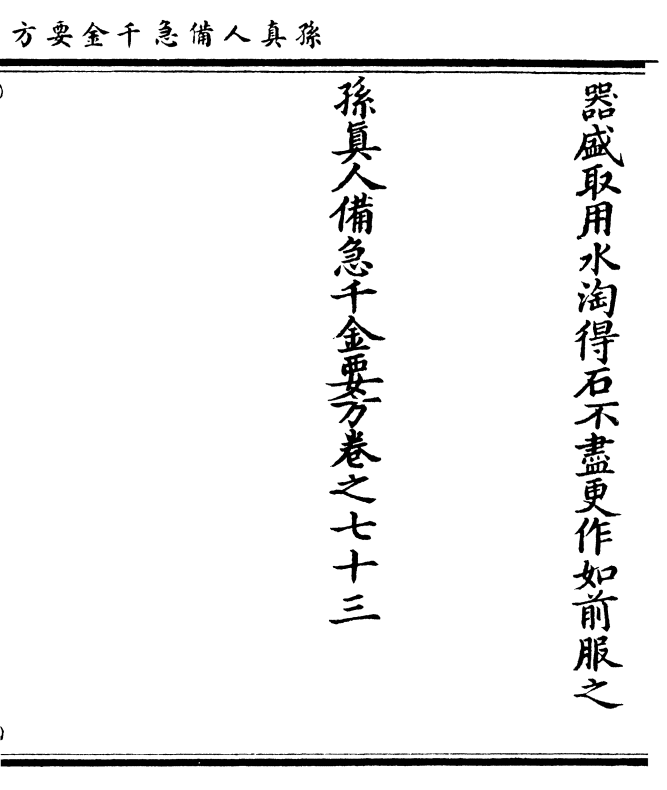 孫真人備急千金要方
器盛取用水淘得石不盡更作如前服之
孫眞人備急千金要方卷之七十三